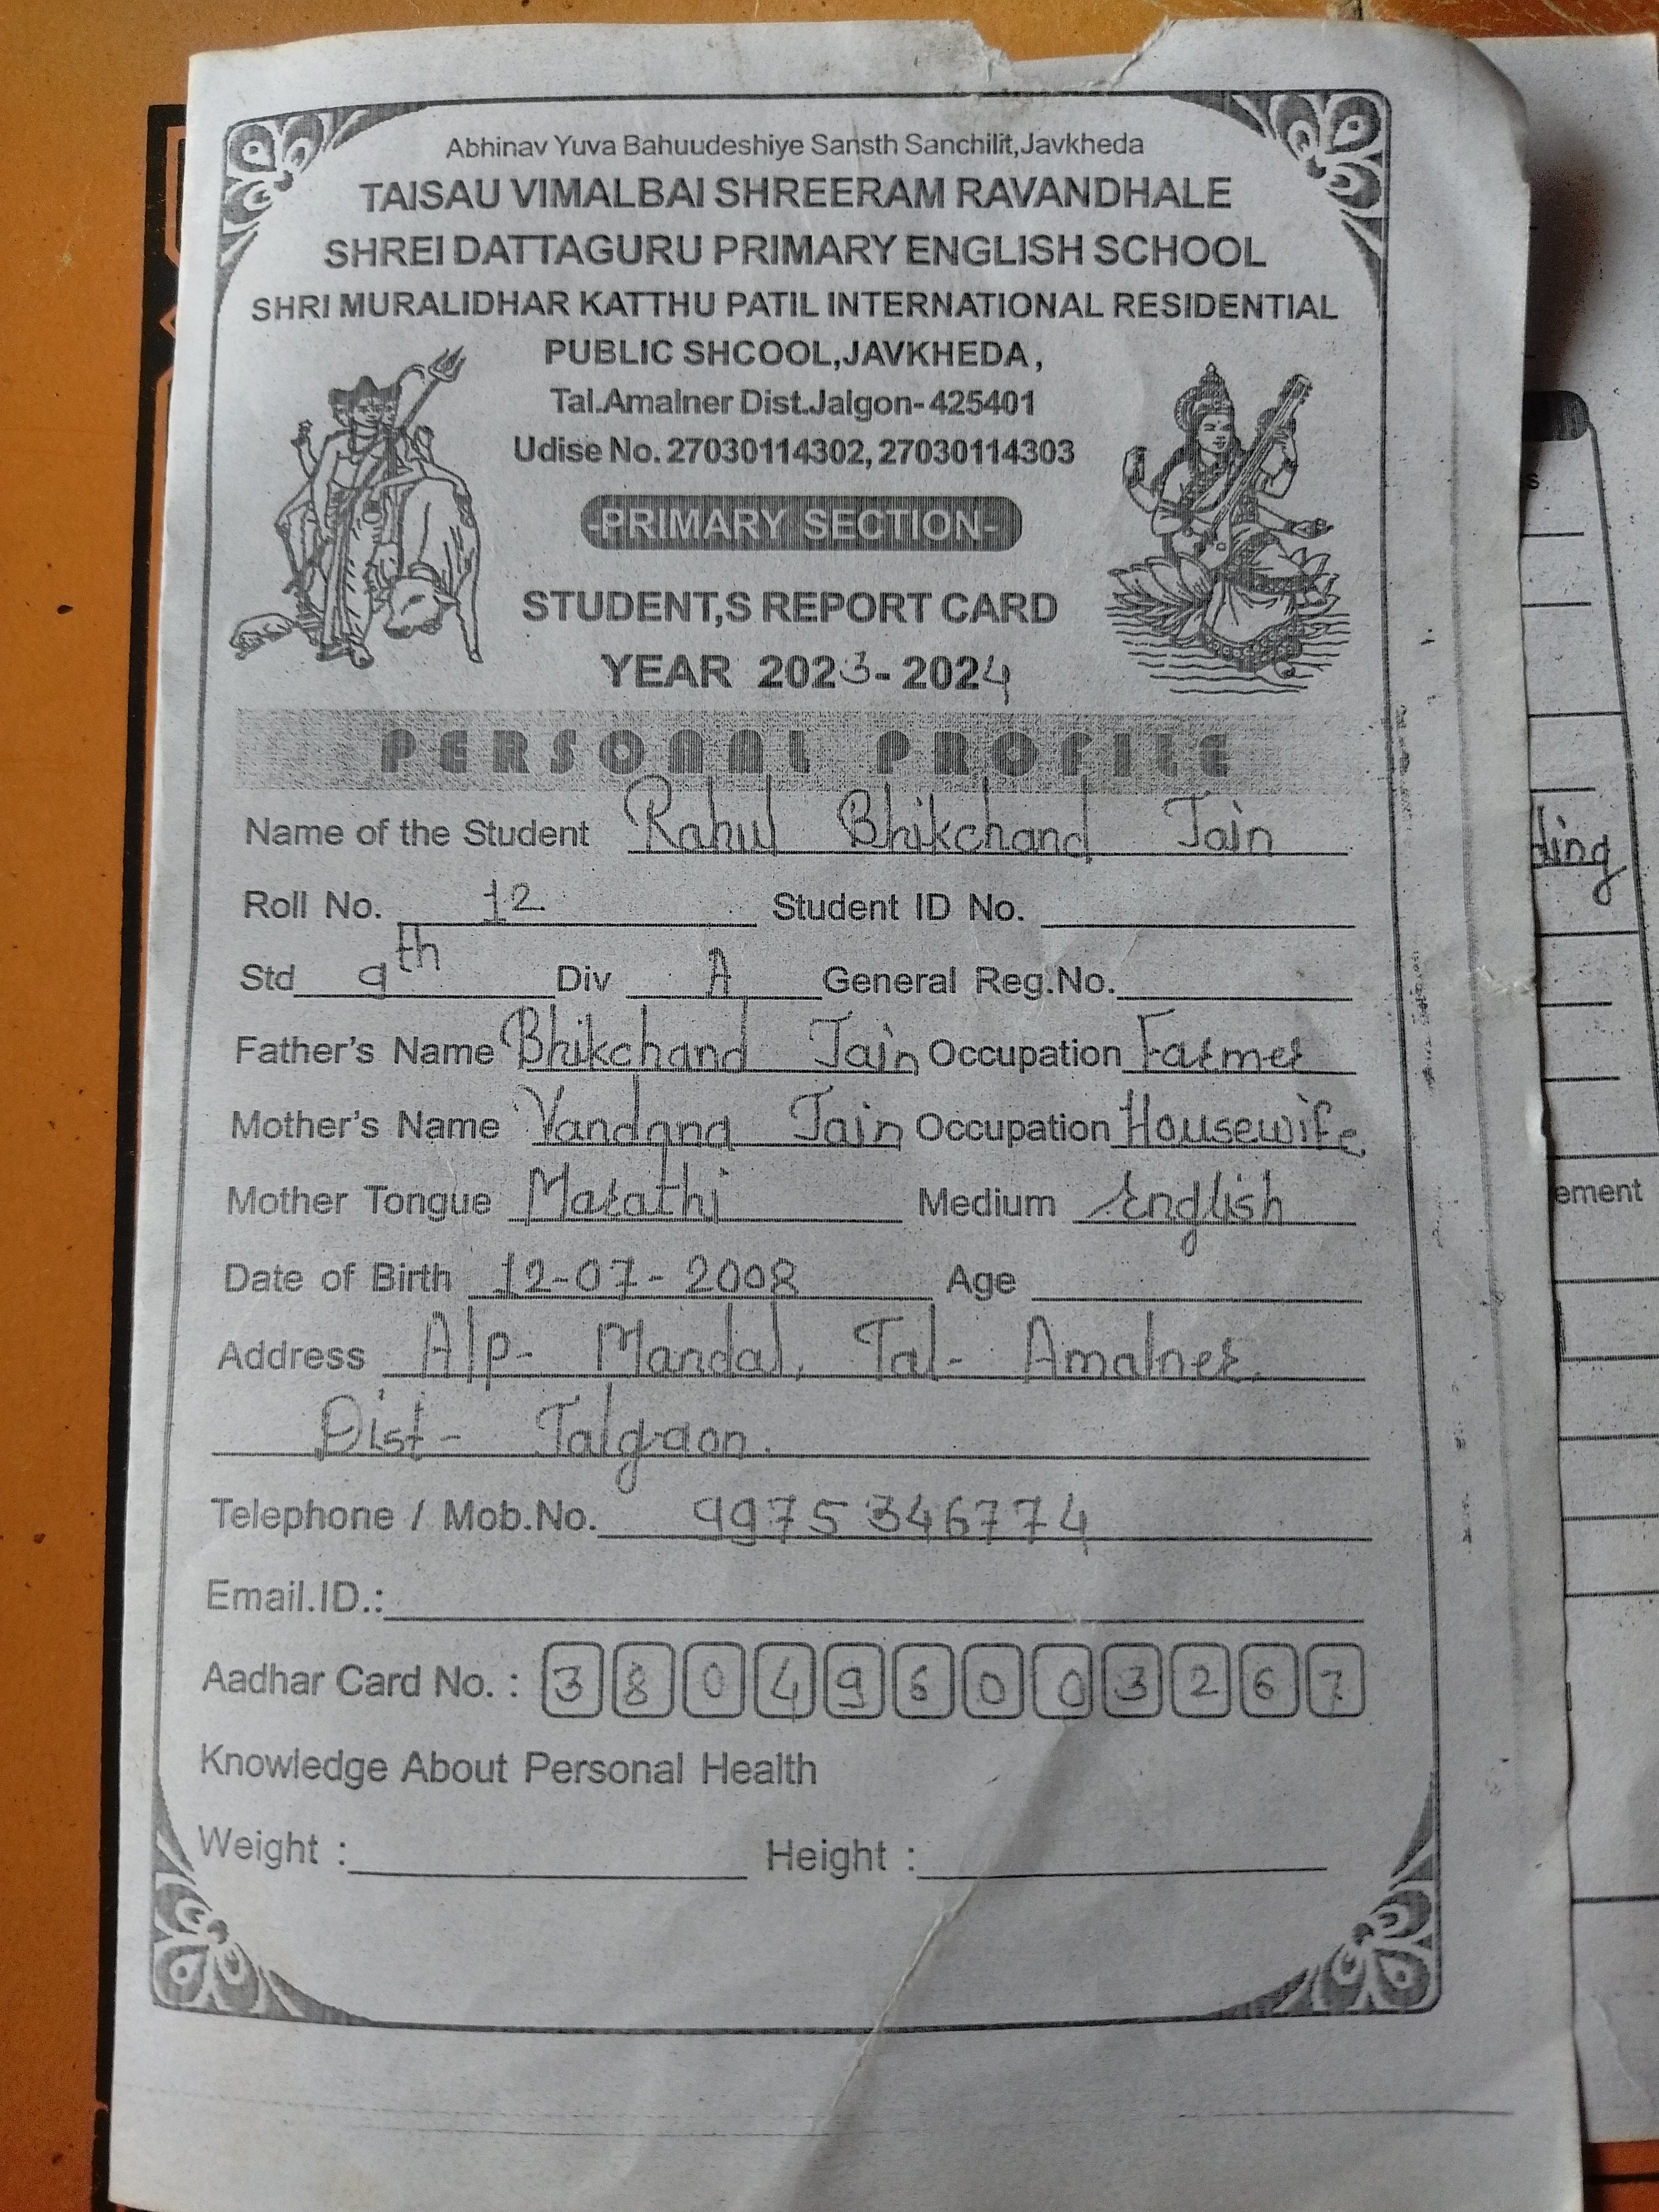 Abhinav Yuva Bahuudeshiye Sansth Sanchilit,Javkheda
TAISAU VIMALBAI SHREERAM RAVANDHALE
SHREI DATTAGURU PRIMARY ENGLISH SCHOOL
SHRI MURALIDHAR KATTHU PATIL INTERNATIONAL RESIDENTIAL
PUBLIC SHCOOL,JAVKHEDA,
Tal.Amalner Dist.Jalgon-425401
Udise No. 27030114302, 27030114303
-PRIMARY SECTION-
STUDENT,S REPORT CARD
YEAR 2023-2024
PERSONAL PROFILE
Name of the Student Rahul Bhikchand Jain
Roll No. 12 Student ID No.
Std 9th Div A General Reg.No.
Father's Name Bhikchand Jain Occupation Farmer
Mother's Name Vandana Jain Occupation Housewife
Mother Tongue Marathi Medium English
Date of Birth 12-07-2008 Age
Address A/p- Mandal, Tal- Amalner.
Dist- Jalgaon.
Telephone / Mob.No. 9975346774
Email.ID.:
Aadhar Card No. : 380496003267
Knowledge About Personal Health
Weight : Height :
ding
ement